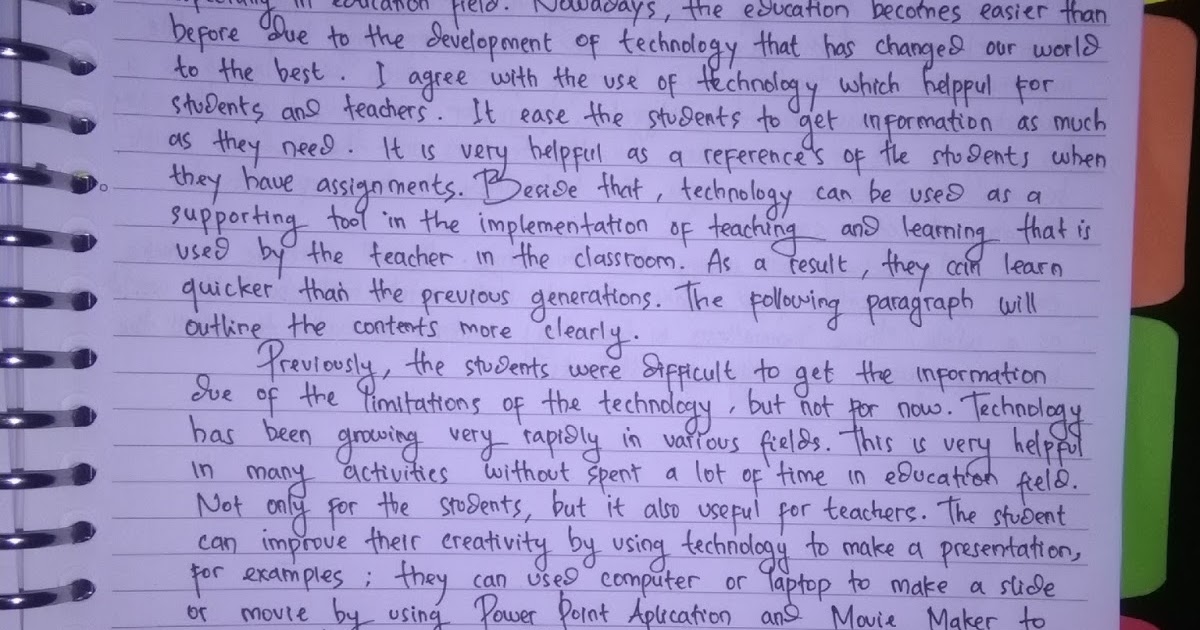 in education field. Nowadays, the education becomes easier than
before due to the development of technology that has changed our world
to the best. I agree with the use of technology which helpful for
students and teachers. It ease the students to get information as much
as they need. It is very helpful as a reference's of the students when
they have assignments. Beside that, technology can be used as a
supporting tool in the implementation of teaching and learning that is
used by the teacher in the classroom. As a result, they can learn
quicker than the previous generations. The following paragraph will
outline the contents more clearly.
Previously, the students were difficult to get the information
due of the limitations of the technology, but not for now. Technology
has been growing very rapidly in various fields. This is very helpful
in many activities without spent a lot of time in education field.
Not only for the students, but it also useful for teachers. The student
can improve their creativity by using technology to make a presentation,
for examples; they can used computer or laptop to make a slide
or movie by using Power Point Aplication and Movie Maker to